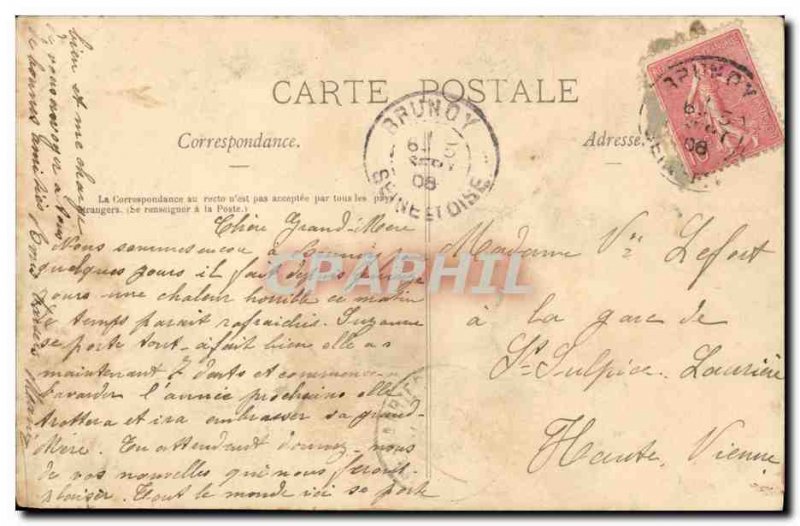 CARTE POSTALE
Correspondance.
Adresse.
La Correspondance au recto n'est pas acceptée par tous les pays
étrangers. (Se renseigner à la Poste.)
BRUNOY
6 5
SEPT
08
SEINE ET OISE
BRUNOY
08
CPAPHIL
Chère Grand-Mère
Nous sommes encou à Brunoi p
quelques jours il fait depuis
jours une chaleur horrible ce matin
le temps parait rafraichis. Suzanne
se porte tout-afait bien elle a
maintenant 7 dents et commence
bavarder l'année prochaine elle
trottera et ira embrasser sa grand-
Mère. En attendant donnez-nous
de vos nouvelles qui nous feront
plaisir. Tout le monde ici se porte
bien et me charge
de vous envoyer a tous
de bonnes amitiés
Madame Vve Lefort
à la gare de
St Sulpice. Laurière
Haute. Vienne